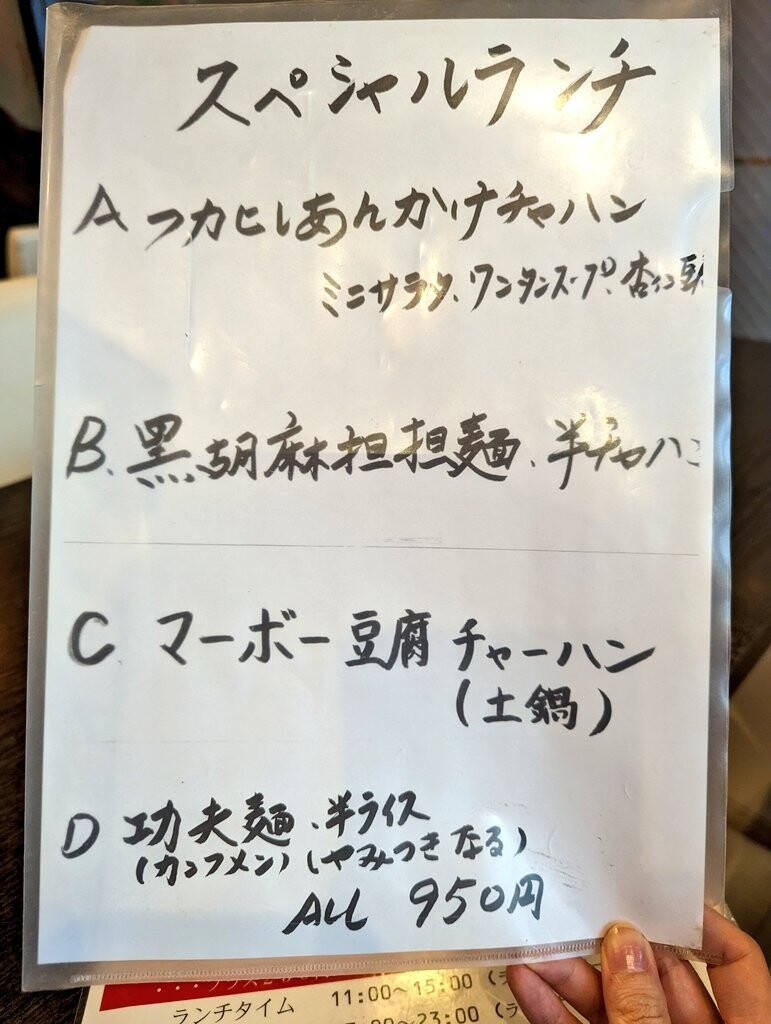 スペシャルランチ
A フカヒレあんかけチャハン
ミニサラダ、ワンタンスープ、杏仁豆
B、黒胡麻担担麺、半チャハン
C マーボー豆腐チャーハン
(土鍋)
D 功夫麺、半ライス
(カンフメン)(やみつきなる)
ALL 950円
ランチタイム 11:00〜15:00
00〜23:00